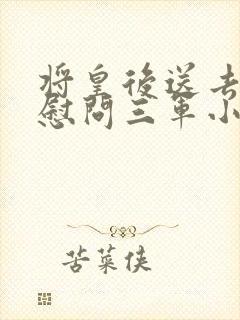 將皇後送去
慰問三軍小
苦菜俠